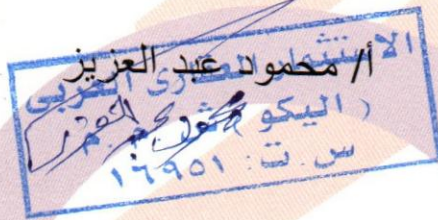 أ/ محمود عبد العزيز
الاستثمار العقارى العربى
( اليكو ) ش.م.م
س.ت: ١٦٩٥١